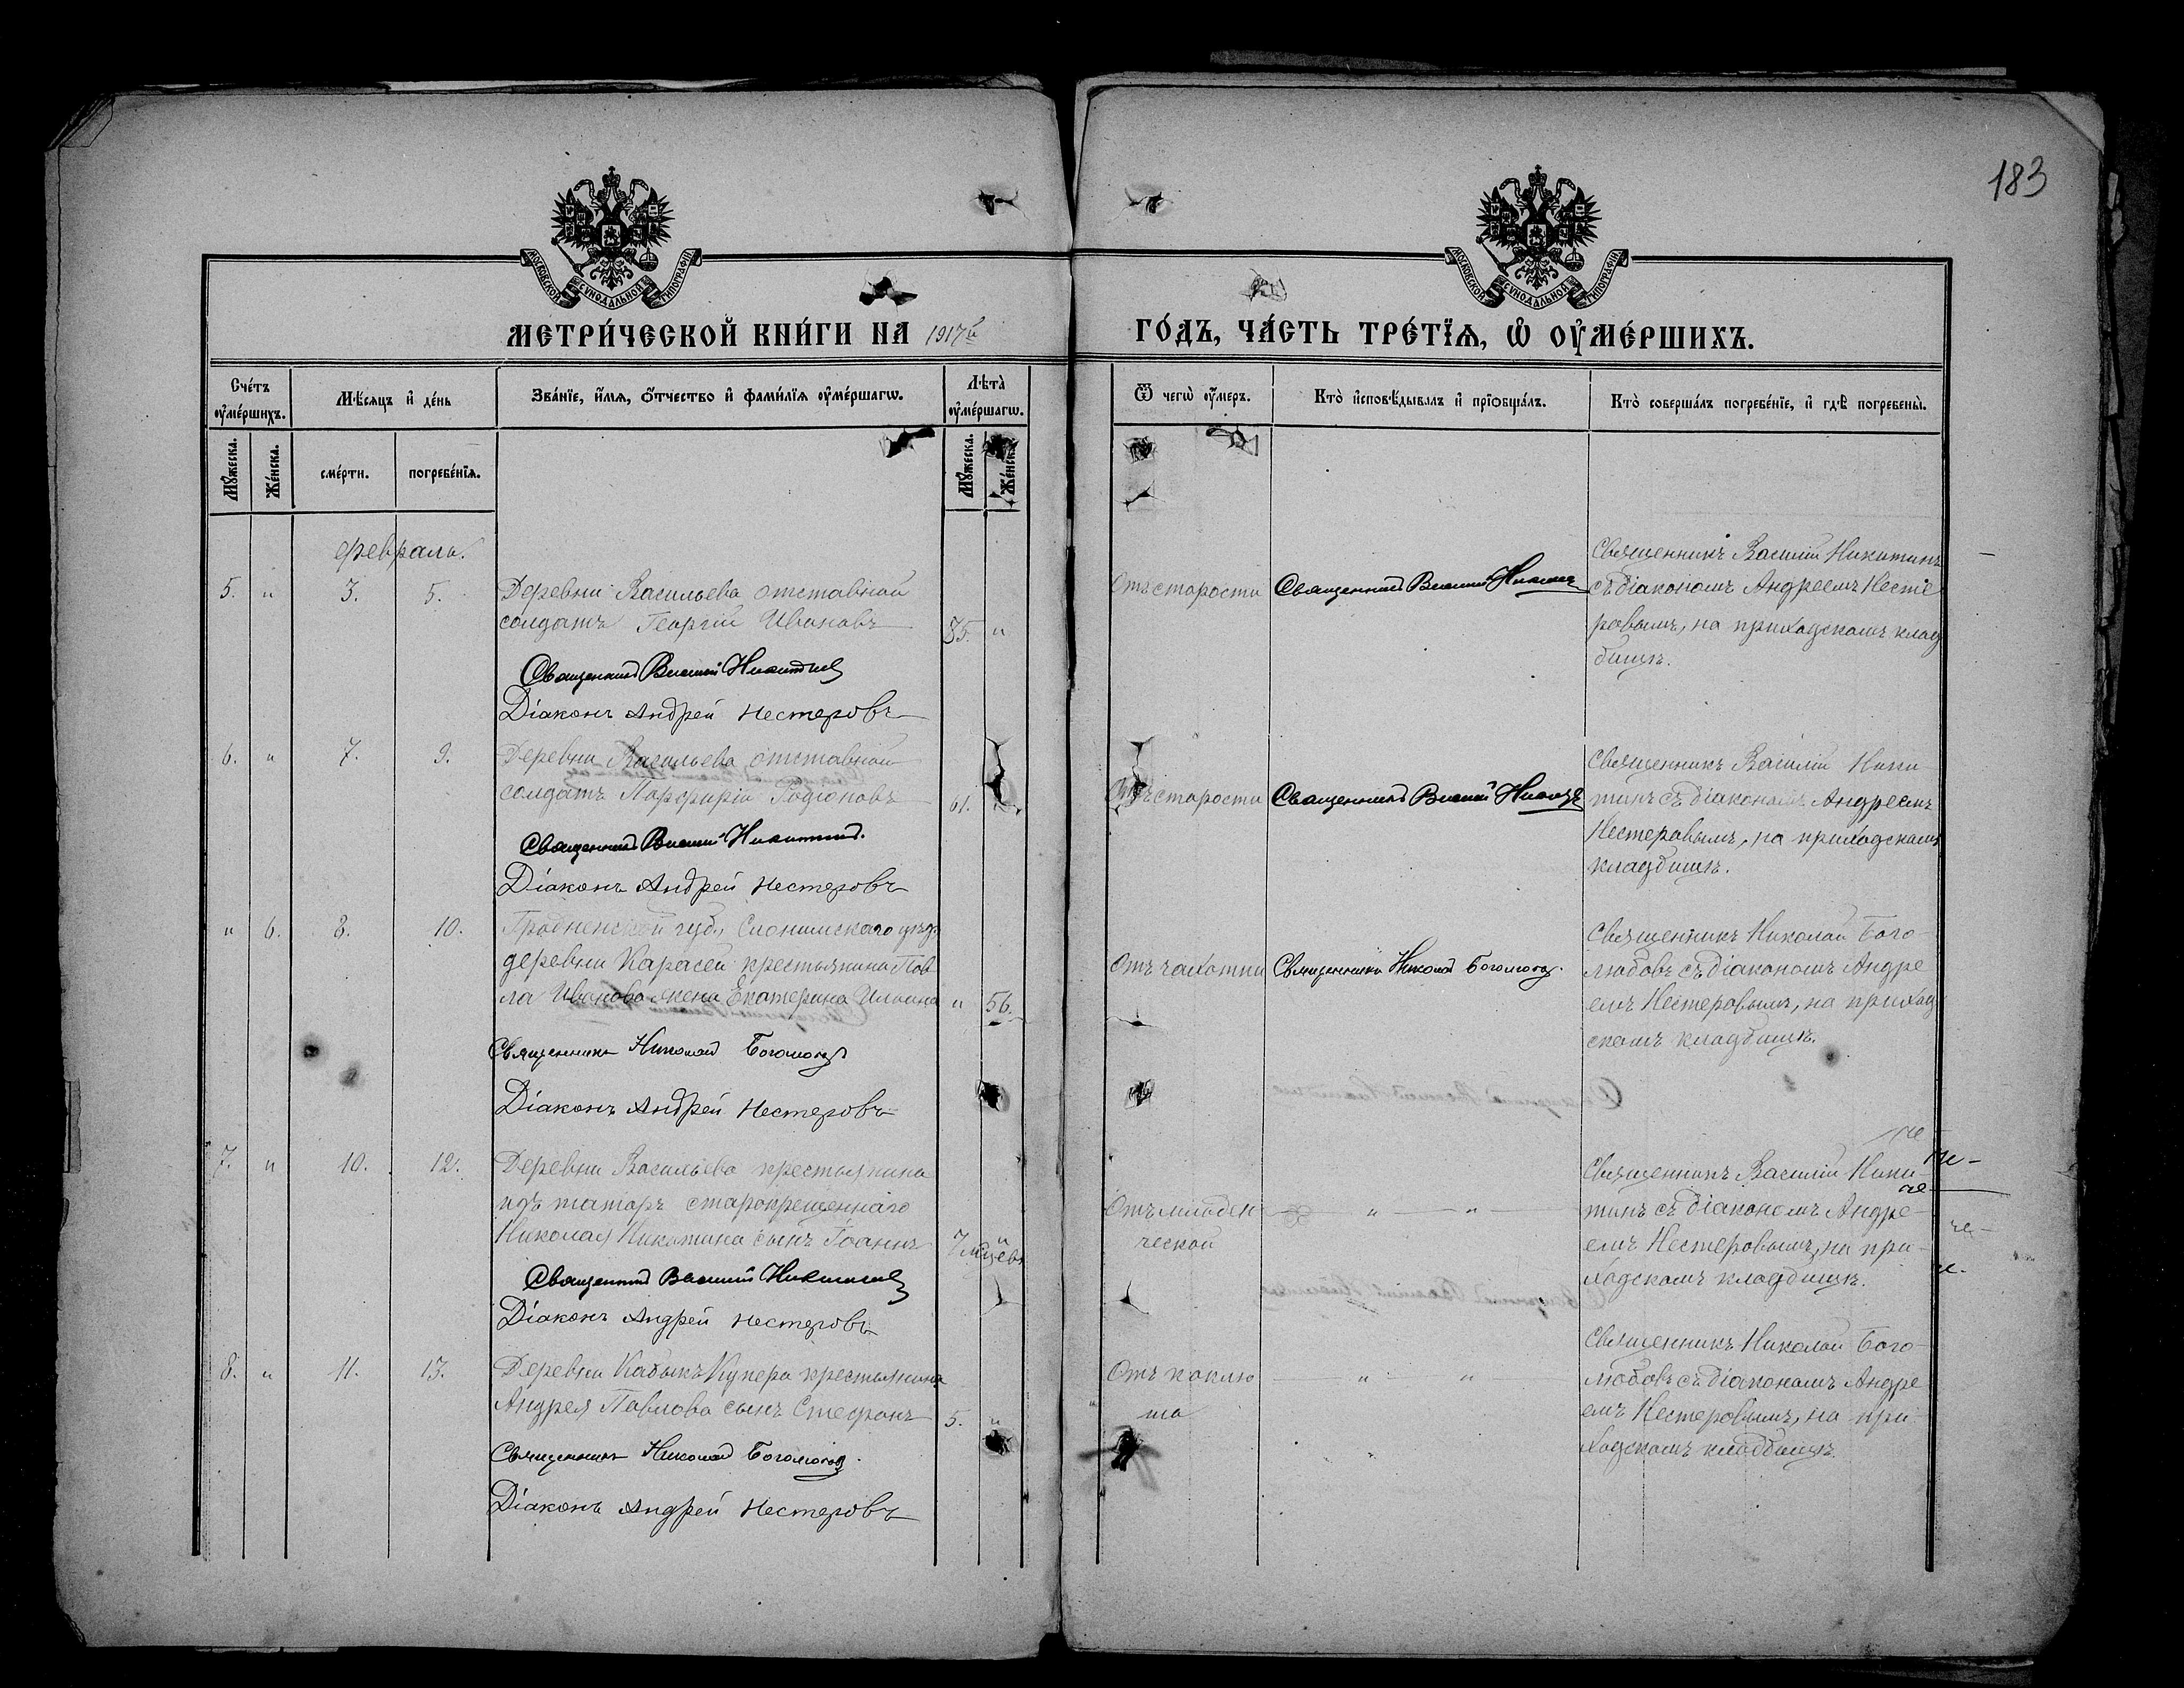 183
МОСКОВСКОЙ СѴНОДАЛЬНОЙ ТИПОГРАФІИ
МОСКОВСКОЙ СѴНОДАЛЬНОЙ ТИПОГРАФІИ
МЕТРИ́ЧЕСКОЙ КНИ́ГИ НА 1917й
ГО́ДЪ, ЧА́СТЬ ТРЕ́ТЇѦ, Ѽ ОУ҆МЕ́РШИХЪ.
Сче́тъ оу҆ме́ршихъ.
Мѣ́сяцъ и҆ де́нь
Зва́нїе, и҆́мѧ, ѻ҆́тчество и҆ фами́лїѧ оу҆ме́ршагѡ.
Лѣта̀ оу҆ме́ршагѡ.
Ѿ чегѡ̀ оу҆́меръ.
Кто̀ и҆сповѣ́дывалъ и҆ прїѡбща́лъ.
Кто̀ соверша́лъ погребе́нїе, и҆ гдѣ̀ погребены̀.
Мꙋ́жеска.
Же́нска.
сме́рти.
погребе́нїѧ.
Мꙋ́жеска.
Же́нска.
февраль.
5. " 3. 5. Деревни Васильева отставной
солдатъ Георгій Ивановъ " 
Священникъ Василій Никитинъ
Діаконъ Андрей Нестеровъ
Отъ старости Священникъ Василій Никитинъ
Священникъ Василій Никитинъ
съ діакономъ Андреемъ Несте
ровымъ, на приходскомъ клад
бищѣ.
6. " 7. 9. Деревни Васильева отставной
солдатъ Парфирій Родіоновъ 61. "
Священникъ Василій Никитинъ.
Діаконъ Андрей Нестеровъ
Отъ старости Священникъ Василій Никитинъ
Священникъ Василій Ники
тинъ съ діакономъ Андреемъ
Нестеровымъ, на приходскомъ
кладбищѣ.
" 6. 8. 10. Гродненской губ., Слонимскаго уѣзд.
деревни Карасеи крестьянина Пав
ла Иванова жена Екатерина Ильина " 56.
Священникъ Николай Боголюбовъ
Діаконъ Андрей Нестеровъ
Отъ чахотки Священникъ Николай Боголюбовъ.
Священникъ Николай Бого-
любовъ съ діакономъ Андре
емъ Нестеровымъ, на приход
скомъ кладбищѣ.
7. " 10. 12. Деревни Васильева крестьянина
изъ татаръ старокрещеннаго
Николая Никитина сынъ Іоаннъ 7 м-цевъ "
Священникъ Василій Никитинъ
Діаконъ Андрей Нестеровъ
Отъ младен
ческой " "
Священникъ Василій Ники-
тинъ съ діакономъ Андре-
емъ Нестеровымъ, на при-
ходскомъ кладбищѣ.
8. " 11. 13. Деревни Кабыкъ Купера крестьянина
Андрея Павлова сынъ Стефанъ 5. "
Священникъ Николай Боголюбовъ.
Діаконъ Андрей Нестеровъ
Отъ коклю
ша " "
Священникъ Николай Бого-
любовъ съ діакономъ Андре
емъ Нестеровымъ, на при
ходскомъ кладбищѣ.